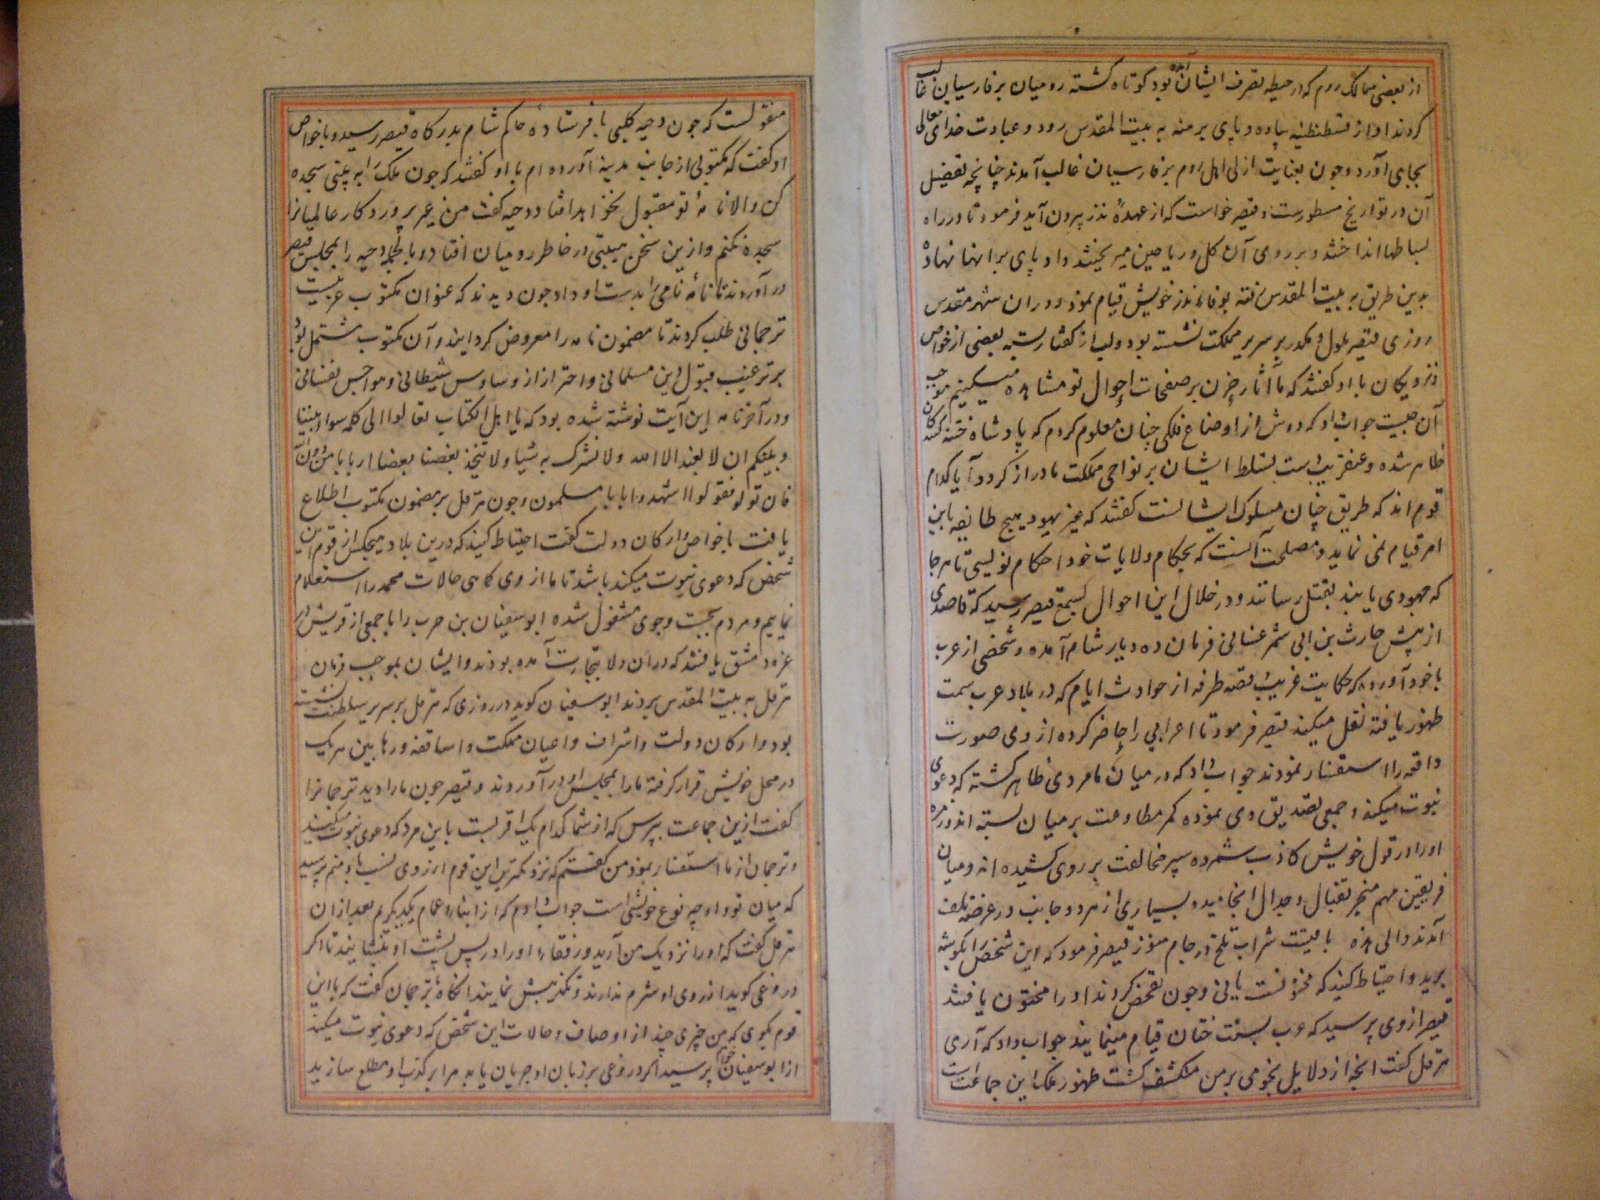 از بعضی ممالک روم که در حیطه تصرف ایشان آمده بود کوتاه کشته رومیان بر فارسیان غالب
کردند او از قسطنطنیه پیاده و پای برهنه به بیت المقدس رود و عبادت خدای تعالی
بجای آورد و چون بعنایت ازلی اهل روم بر فارسیان غالب آمدند چنانچه تفصیل
آن در تواریخ مسطورست قیصر خواست که از عهدهٔ نذر بیرون آید فرمود تا در راه
بساطها انداختند و بر روی آن کل و ریاحین میریختند و او پای بر انها نهاده
بدین طریق به بیت المقدس رفته بوفاء نذر خویش قیام نمود و در ان شهر مقدس
روزی قیصر ملول و مکدر بر سریر مملکت نشسته بود و لب از کفتار بسته بعضی از خواص
و نزدیکان با او کفتند که ما آثار حزن بر صفحات احوال تو مشاهده میکنیم موجب
آن چیست جواب داد که دوش از اوضاع فلکی چنان معلوم کردم که پادشاه ختنه کنندکان
ظاهر شده و عنقریب است تسلط ایشان بر نواحی مملکت ما دراز کردد آیا کدام
قوم اند که طریق ختان مسلوک ایشانست کفتند که غیر یهود هیچ طایفه باین
امر قیام نمی نماید و مصلحت آنست که بحکام ولایات خود احکام نویسی تا هر جا
که جهودی یابند بقتل رسانند و در خلال این احوال بسمع قیصر رسید که قاصدی
از پیش حارث بن ابی شمر غسانی فرمان ده دیار شام آمده و شخصی از عرب
با خود آورده که حکایت غریب و قصه طرفه از حوادث ایام که در بلاد عرب سمت
ظهور یافته نقل میکند قیصر فرمود تا اعرابی را حاضر کرده از وی صورت
واقعه را استفسار نمودند جواب داد که در میان ما مردی ظاهر کشته که دعوی
نبوت میکند و جمعی تصدیق وی نموده کمر مطاوعت بر میان بسته اند و زمره
او را در قول خویش کاذب شمرده سپر مخالفت بر روی کشیده اند و میان
فریقین مهم منجر بقتال و جدال انجامیده و بسیاری از هر دو جانب در عرضه تلف
آمدند والی هذه شراب تلخ در جام هنوز قیصر فرمود که این شخص را بکوشه
برید و احتیاط کنید که مختونست یا نی و چون تفحص کردند او را مختون یافتند
قیصر از وی پرسید که عرب بسنت ختان قیام مینمایند جواب داد که آری
هرقل کفت انچه از دلایل نجومی بر من منکشف کشت ظهور ملک این جماعت است
منقولست که چون دحیه کلبی با فرستادهٔ حاکم شام بدرکاه قیصر رسید و با خواص
او کفت که مکتوبی از جانب مدینه آورده ام با او کفتند که چون ملک را به بینی سجده
کن والا نامهٔ تو مقبول نخواهد افتاد دحیه کفت من غیر پروردکار عالمیانرا
سجده نکنم و ازین سخن هیبتی در خاطر رومیان افتاد و بالجمله دحیه را بمجلس قیصر
در آوردند تا نامهٔ نامی را بدست او داد چون دیدند که عنوان مکتوب عربیست
ترجمانی طلب کردند تا مضمون نامه را معروض کردانید و آن مکتوب مشتمل بود
بر ترغیب قبول دین مسلمانی و احتراز از وساوس شیطانی و هواجس نفسانی
و در آخر نامه این آیت نوشته شده بود که یا اهل الکتاب تعالوا الی کلمه سواء بیننا
و بینکم ان لا نعبد الا الله ولا نشرک به شیئا ولا یتخذ بعضنا بعضا اربابا من دون الله
فان تولوا فقولوا اشهدوا بانا مسلمون و چون هرقل بر مضمون مکتوب اطلاع
یافت با خواص و ارکان دولت کفت احتیاط کنید که درین بلاد هیچکس از قوم این
شخص که دعوی نبوت میکند باشد تا ما از وی کاهی حالات محمد را استعلام
نماییم و مردم بجست و جوی مشغول شده ابو سفیان بن حرب را با جمعی از قریش در
غزه دمشق یافتند که در ان ولا بتجارت آمده بودند و ایشان بموجب فرمان
هرقل به بیت المقدس بردند ابو سفیان کوید در روزی که هرقل بر سریر سلطنت نشسته
بود و ارکان دولت و اشراف و اعیان مملکت و اساقفه و رهابین هر یک
در محل خویش قرار کرفته ما را بمجلس او در آوردند و قیصر چون ما را دید ترجمانرا
کفت ازین جماعت بپرس که از شما کدام یک اقربست باین مرد که دعوی نبوت میکند
و ترجمان از ما استفسار نمود من کفتم که نزدیکترین این قوم از روی نسب باو منم پرسید
که میان تو و او چه نوع خویشی است جواب دادم که از ابناء اعمام یکدیکریم بعد از ان
هرقل کفت که او را نزدیک من آرید و رفقاء او را در پس پشت او بنشانید تا اکر
دروغی کوید از روی او شرم ندارند و تکذیبش نمایند انکاه با ترجمان کفت که با این
قوم بکوی که من چیزی چند از اوصاف و حالات این شخص که دعوی نبوت میکند
از ابو سفیان خواهم پرسید اکر دروغی بر زبان او جریان یابد مرا بر کذب او مطلع سازید